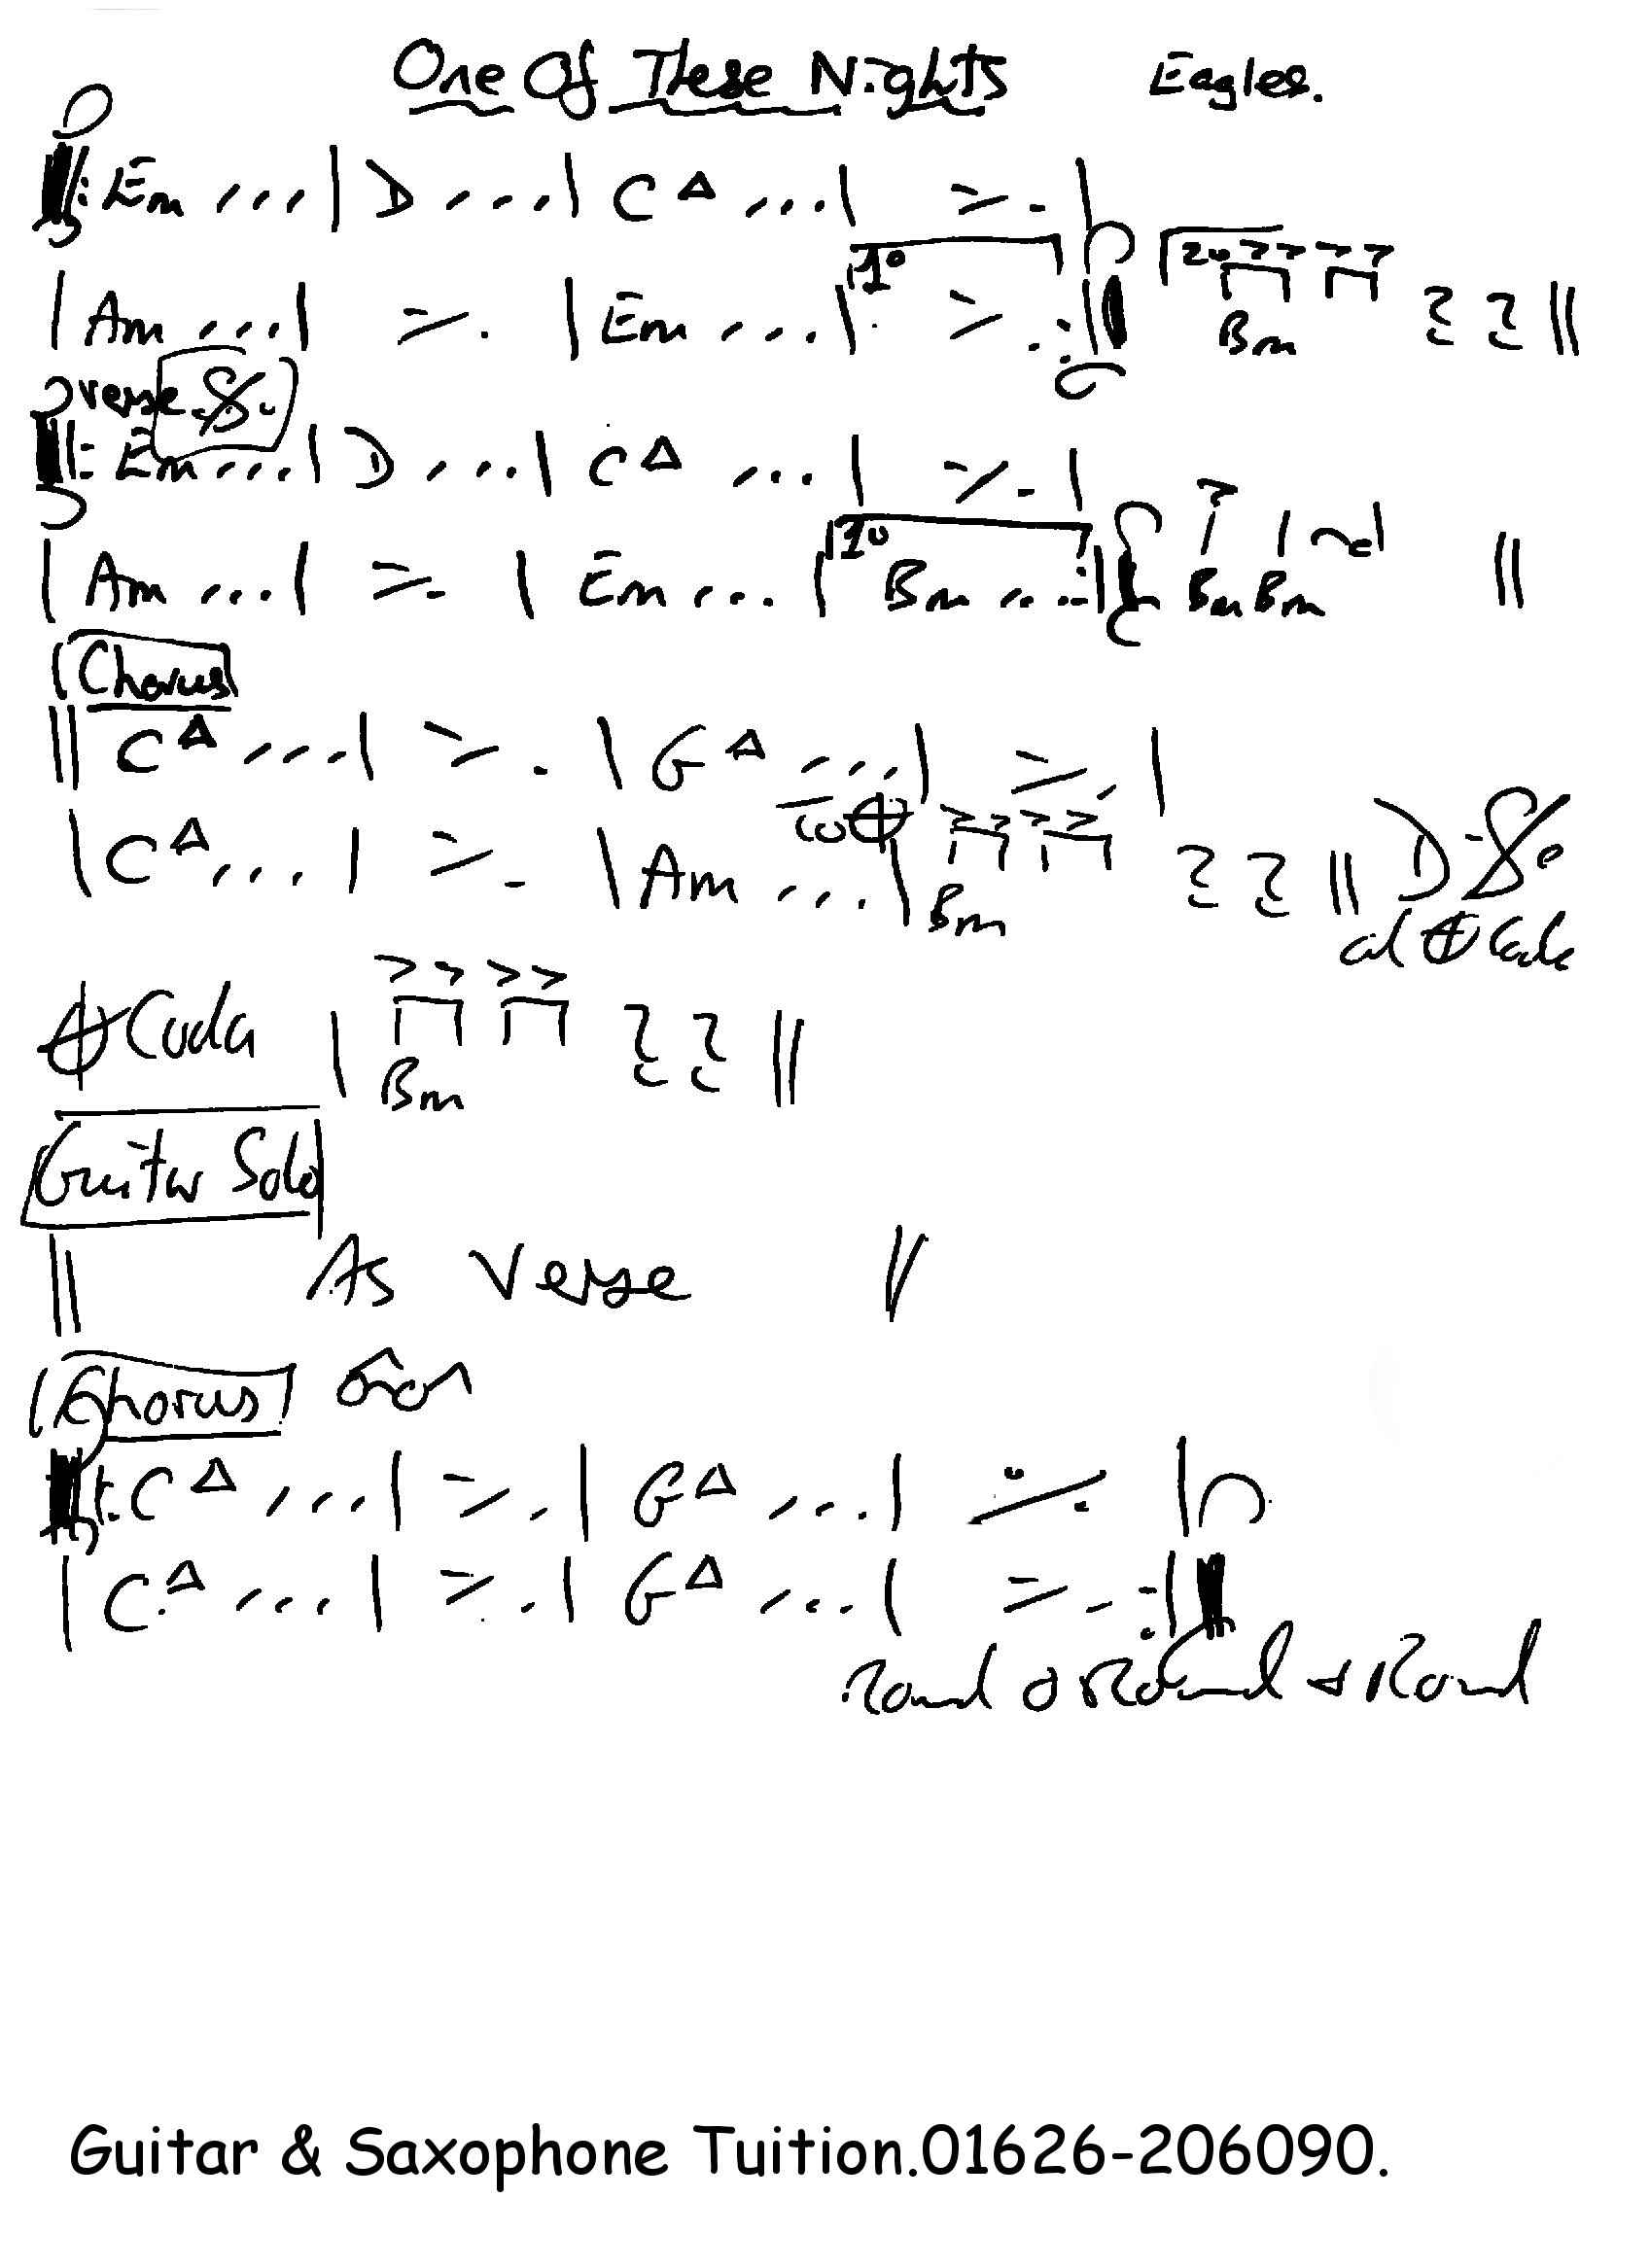 One Of These Nights Eagles.
||: Em ... | D ... | C Δ ... | ⁒ |
| Am ... | ⁒ | Em ... | 1° ⁒ :|| 2° > > > > Bm 𝄽 𝄽 ||
verse 𝄋
||: Em ... | D ... | C Δ ... | ⁒ |
| Am ... | ⁒ | Em ... | 1° Bm ... :|| > Bm Bm ||
Chorus
|| C Δ ... | ⁒ | G Δ ... | ⁒ |
| C Δ ... | ⁒ | Am ... | To 𝄌 > > > > Bm 𝄽 𝄽 || D 𝄋
al 𝄌 Coda
𝄌 Coda | > > > > Bm 𝄽 𝄽 ||
Guitar Solo
|| As Verse ||
Chorus
||: C Δ ... | ⁒ | G Δ ... | ⁒ |
| C Δ ... | ⁒ | G Δ ... | ⁒ :||
Round & Round & Round
Guitar & Saxophone Tuition.01626-206090.